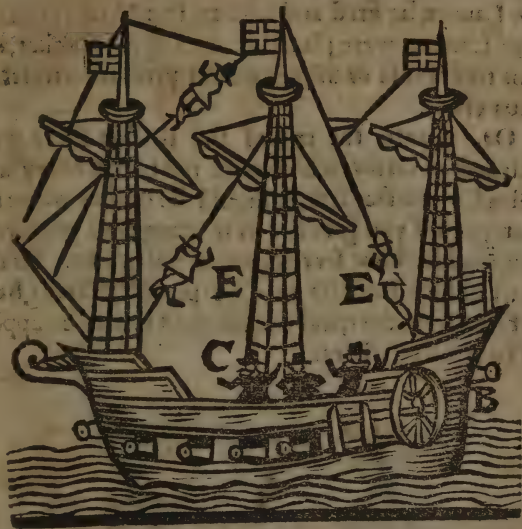 E E
C
B